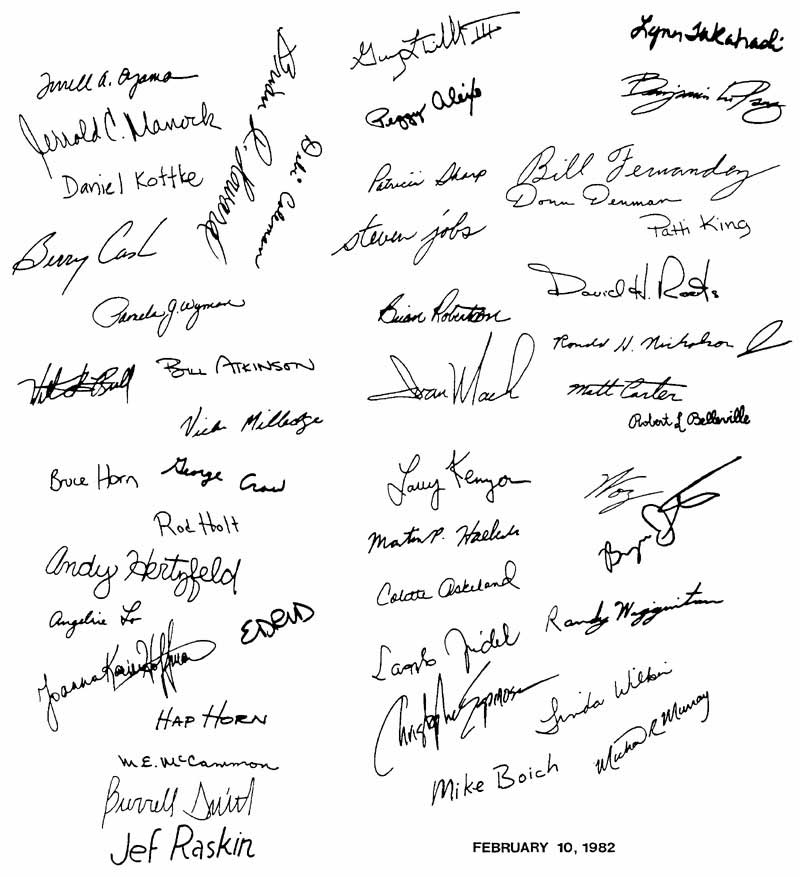 Lynn Takahashi
Terrell A. Oyama
Peggy Alexio
Jerrold C. Manock
Brian R. Howard
Debi Coleman
Daniel Kottke
Patricia Sharp
Bill Fernandez
Donn Denman
Patti King
Berry Cash
steven jobs
David H. Roots
Pamela G. Wyman
Brian Robertson
Ronald H. Nicholson Jr
Bill Atkinson
Matt Carter
Robert L Belleville
Vicki Milledge
Bruce Horn
George Crow
Larry Kenyon
Woz
Rod Holt
Martin P. Haeberli
Andy Hertzfeld
Colette Askeland
Angeline Lo
Randy Wigginton
Joanna Karin Hoffman
Laszlo Zidek
HAP HORN
Christopher Espinosa
Linda Wilkin
M.E. McCammon
Mike Boich
Michael R Murray
Burrell Smith
Jef Raskin
FEBRUARY 10, 1982